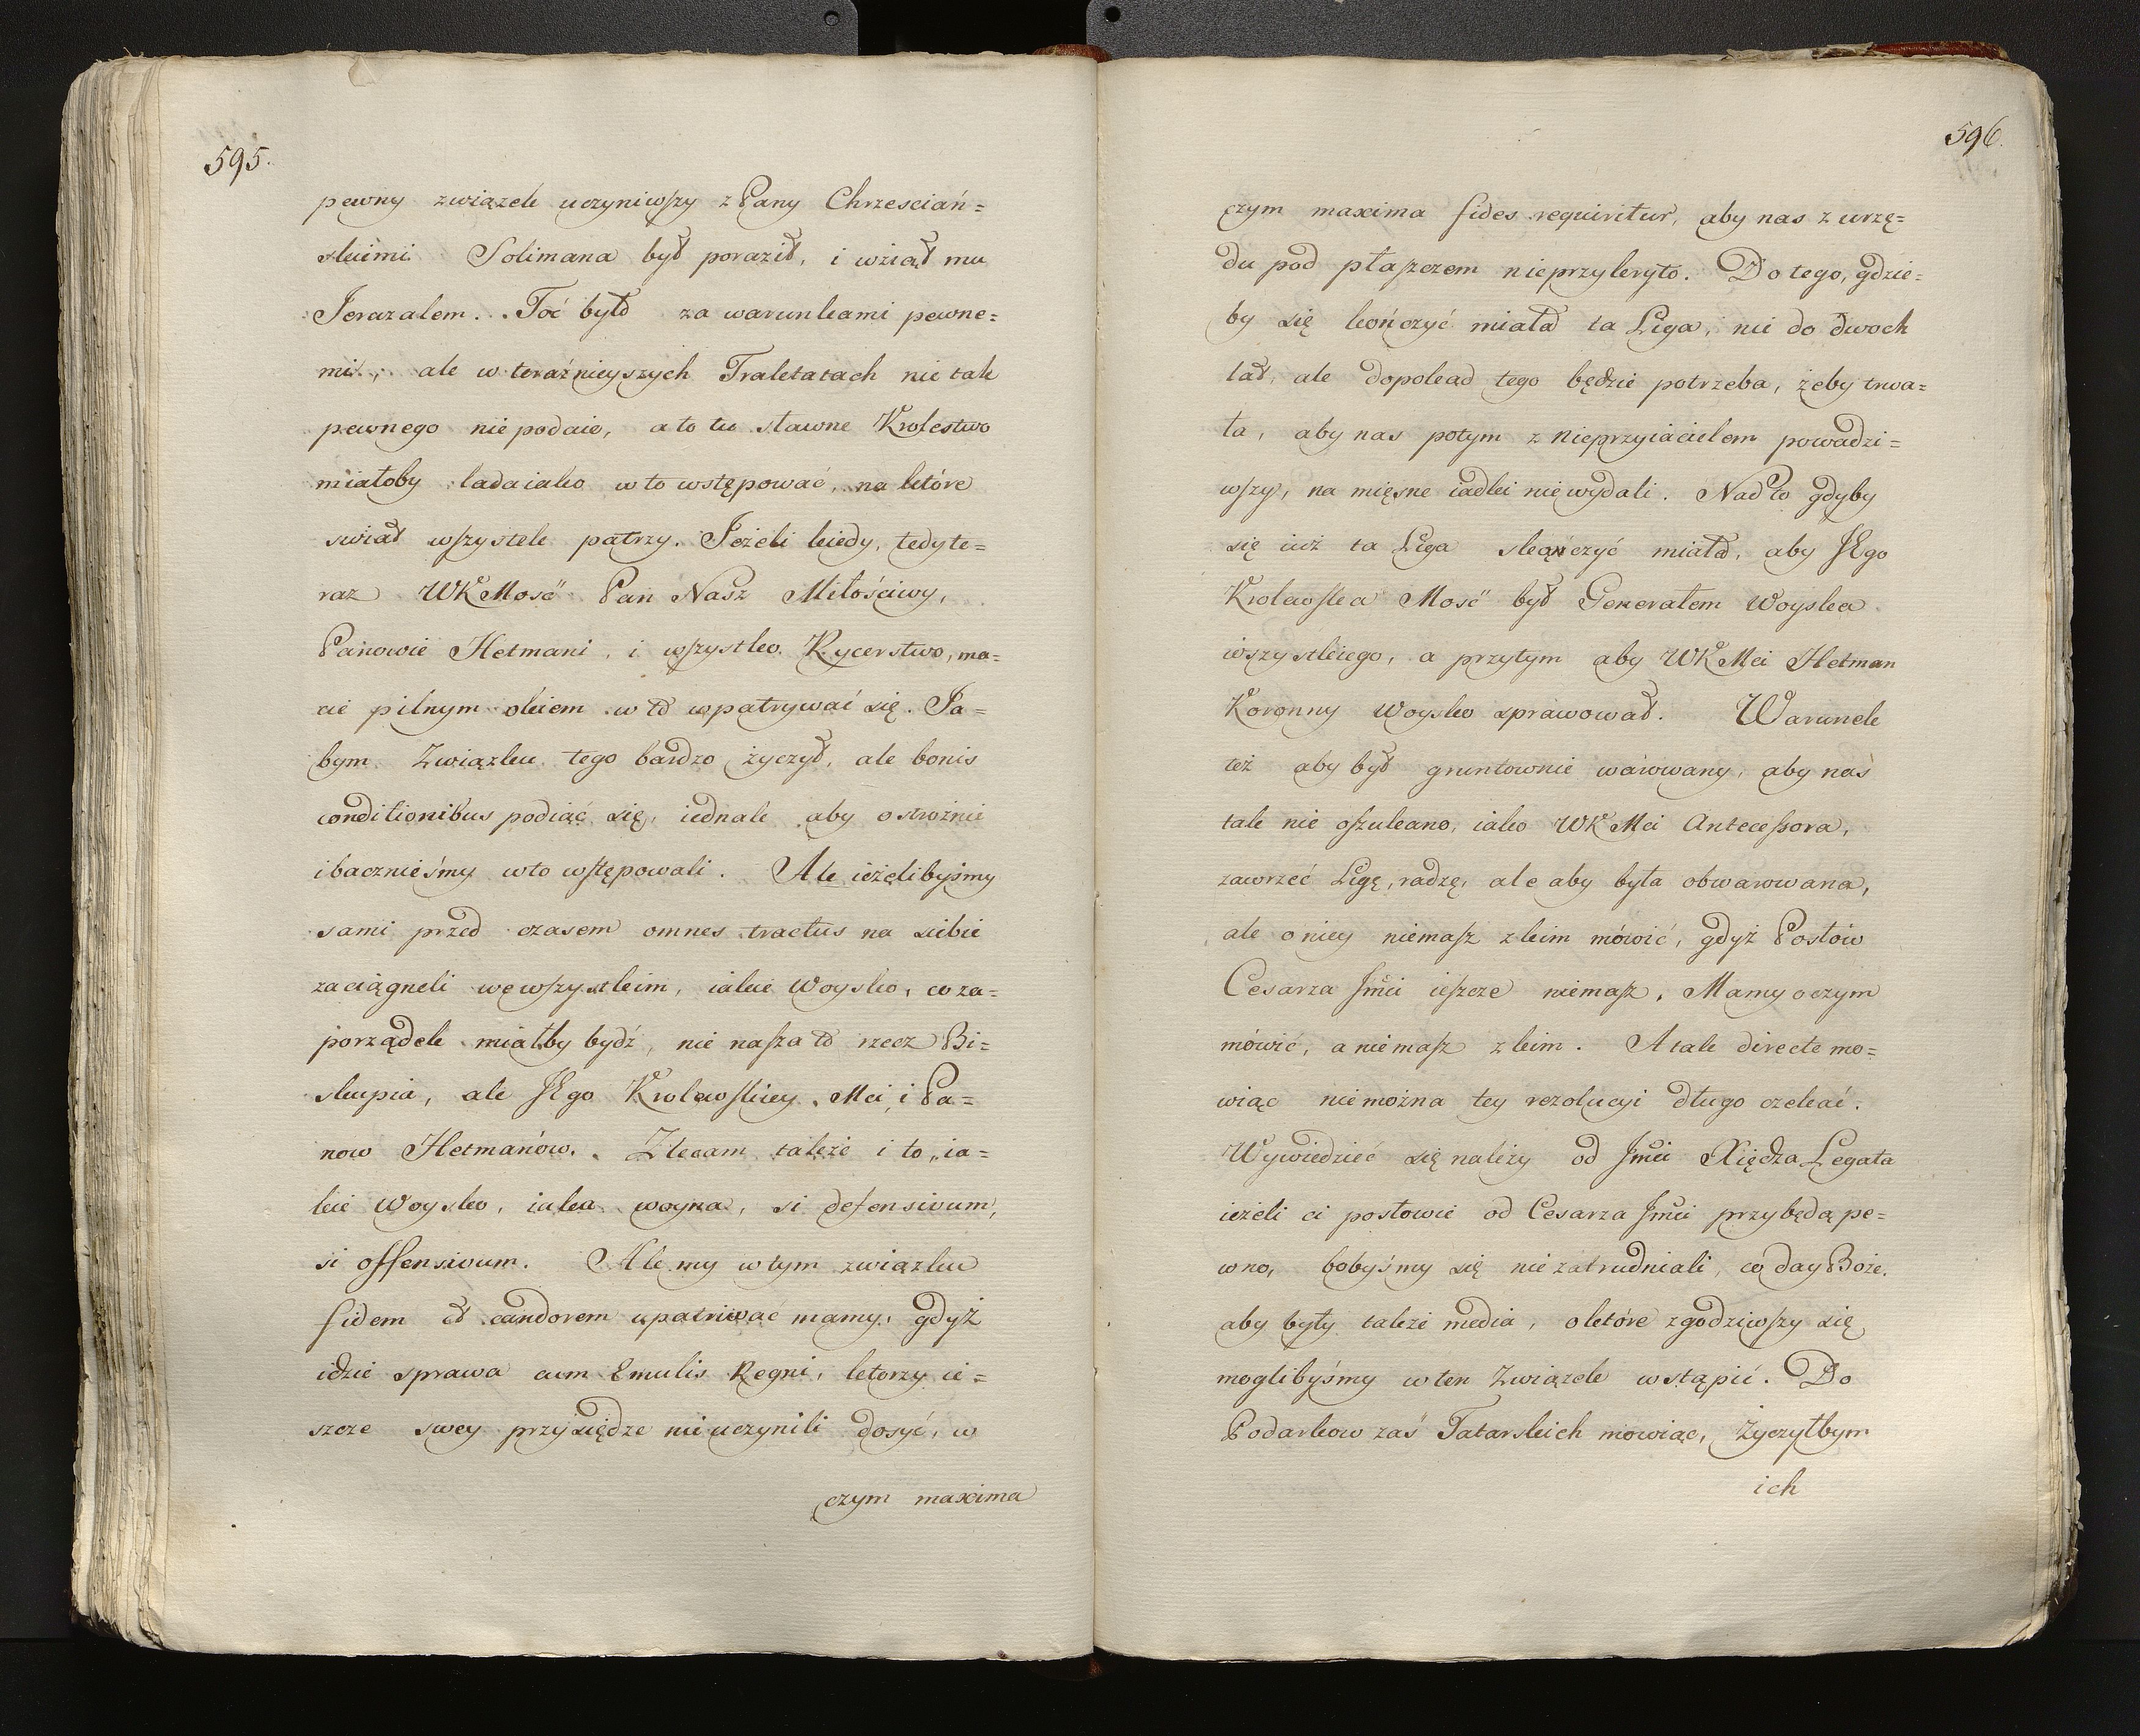 595.
pewny związek uczyniwszy z Pany Chrzesciań=
skiemi Solimana był poraził, i wziął mu
Jerazalem. Toć było za warunkami pewne=
mi, ale w teraźnieyszych Traktatach nie tak
pewnego nie podaie, a to tu sławne Krolestwo
miałoby ladaiako w to wstępować, na które
swiat wszystek patrzy. Jeżeli kiedy, tedy te=
raz WK Mość Pan Nasz Miłościwy,
Panowie Hetmani, i wszystko Rycerstwo, ma=
cie pilnym okiem w to wpatrywać się. Ja=
bym Związku tego bardzo życzył, ale bonis
conditionibus podiąć się, iednak aby ostrożnie
i bacznieśmy w to wstępowali. Ale ieżelibyśmy
sami przed czasem omnes tractus na siebie
zaciągneli we wszystkim, iakie Woysko, co za=
porządek miałby bydź, nie nasza to rzecz Bi=
skupia, ale JEgo Krolewskiey Mci, i Pa=
now Hetmanów. Zlecam także i to, ia=
kie Woysko, iaka woyna, si defensivum,
si offensivum. Ale my w tym związku
fidem et candorem upatriwać mamy, gdyż
idzie sprawa cum Emulis Regni, ktorzy ie=
szcze swey przysiędze nie uczynili dosyć, w
czym maxima
596.
czym maxima fides requiritur, aby nas z urzę=
du pod płaszczem nieprzykryto. Do tego, gdzie=
by się kończyć miała ta Liga, nie do dwoch
lat, ale dopokąd tego będzie potrzeba, żeby trwa=
ła, aby nas potym z nieprzyiacielem powadzi=
wszy, na mięsne iadki nie wydali. Nad to gdyby
się iuż ta Liga skończyć miała, aby JEgo
Krolewska Mość był Generałem Woyska
wszystkiego, a przytym aby WK Mci Hetman
Koronny Woysko sprawował. Warunek
też aby był gruntownie warowany, aby nas
tak nie oszukano, iako WK Mci Antecessora,
zawrzeć Ligę, radzę, ale aby była obwarowana,
ale o niey niemasz z kim mówić, gdyż Posłow
Cesarza Jmci ieszcze niemasz. Mamy o czym
mówić, a niemasz z kim. A tak directe mo=
wiąc niemożna tey rezolucyi długo czekać.
Wywiedzieć się należy od Jmci Xiędza Legata
ieżeli ci posłowie od Cesarza Jmci przybędą pe=
wno, bobyśmy się nie zatrudniali, co day Boże,
aby były także media, o które zgodziwszy się
moglibyśmy w ten Związek wstąpić. Do
Podarkow zaś Tatarskich mowiąc, życzyłbym
ich